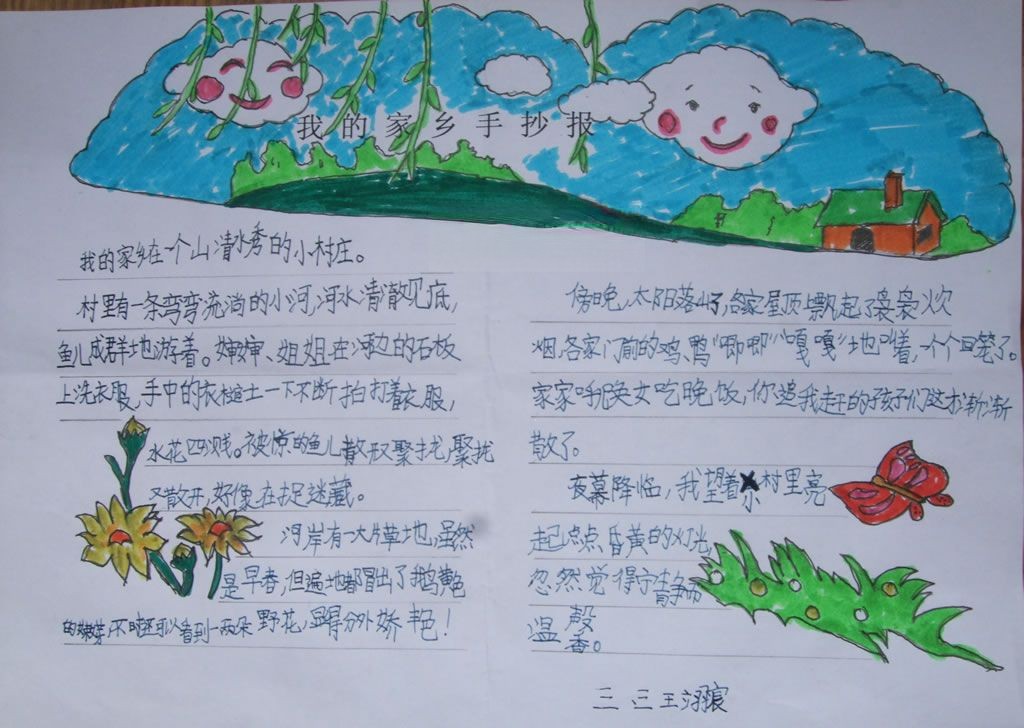 我的家乡手抄报
我的家乡在一个山清水秀的小村庄。
村里有一条弯弯流淌的小河,河水清澈见底,
鱼儿成群地游着。婶婶、姐姐在河边的石板
上洗衣服,手中的衣槌土一下不断拍打着衣服,
水花四溅。被惊的鱼儿散开聚拢,聚拢
又散开,好像在捉迷藏。
河岸有一大片草地,虽然
是早春,但遍地都冒出了鹅黄色
的嫩芽,不时还可以看到一两朵野花,显得分外娇艳!
傍晚,太阳落山了,各家屋顶上飘起了袅袅炊
烟,各家门前的鸡、鸭“唧唧”“嘎嘎”地叫着,一个个回笼了。
家家呼唤女吃晚饭,你追我赶的孩子们这才渐渐
散了。
夜幕降临,我望着小村里亮
起点点昏黄的灯光,
忽然觉得宁静而
温馨。
三 三 王羽宸